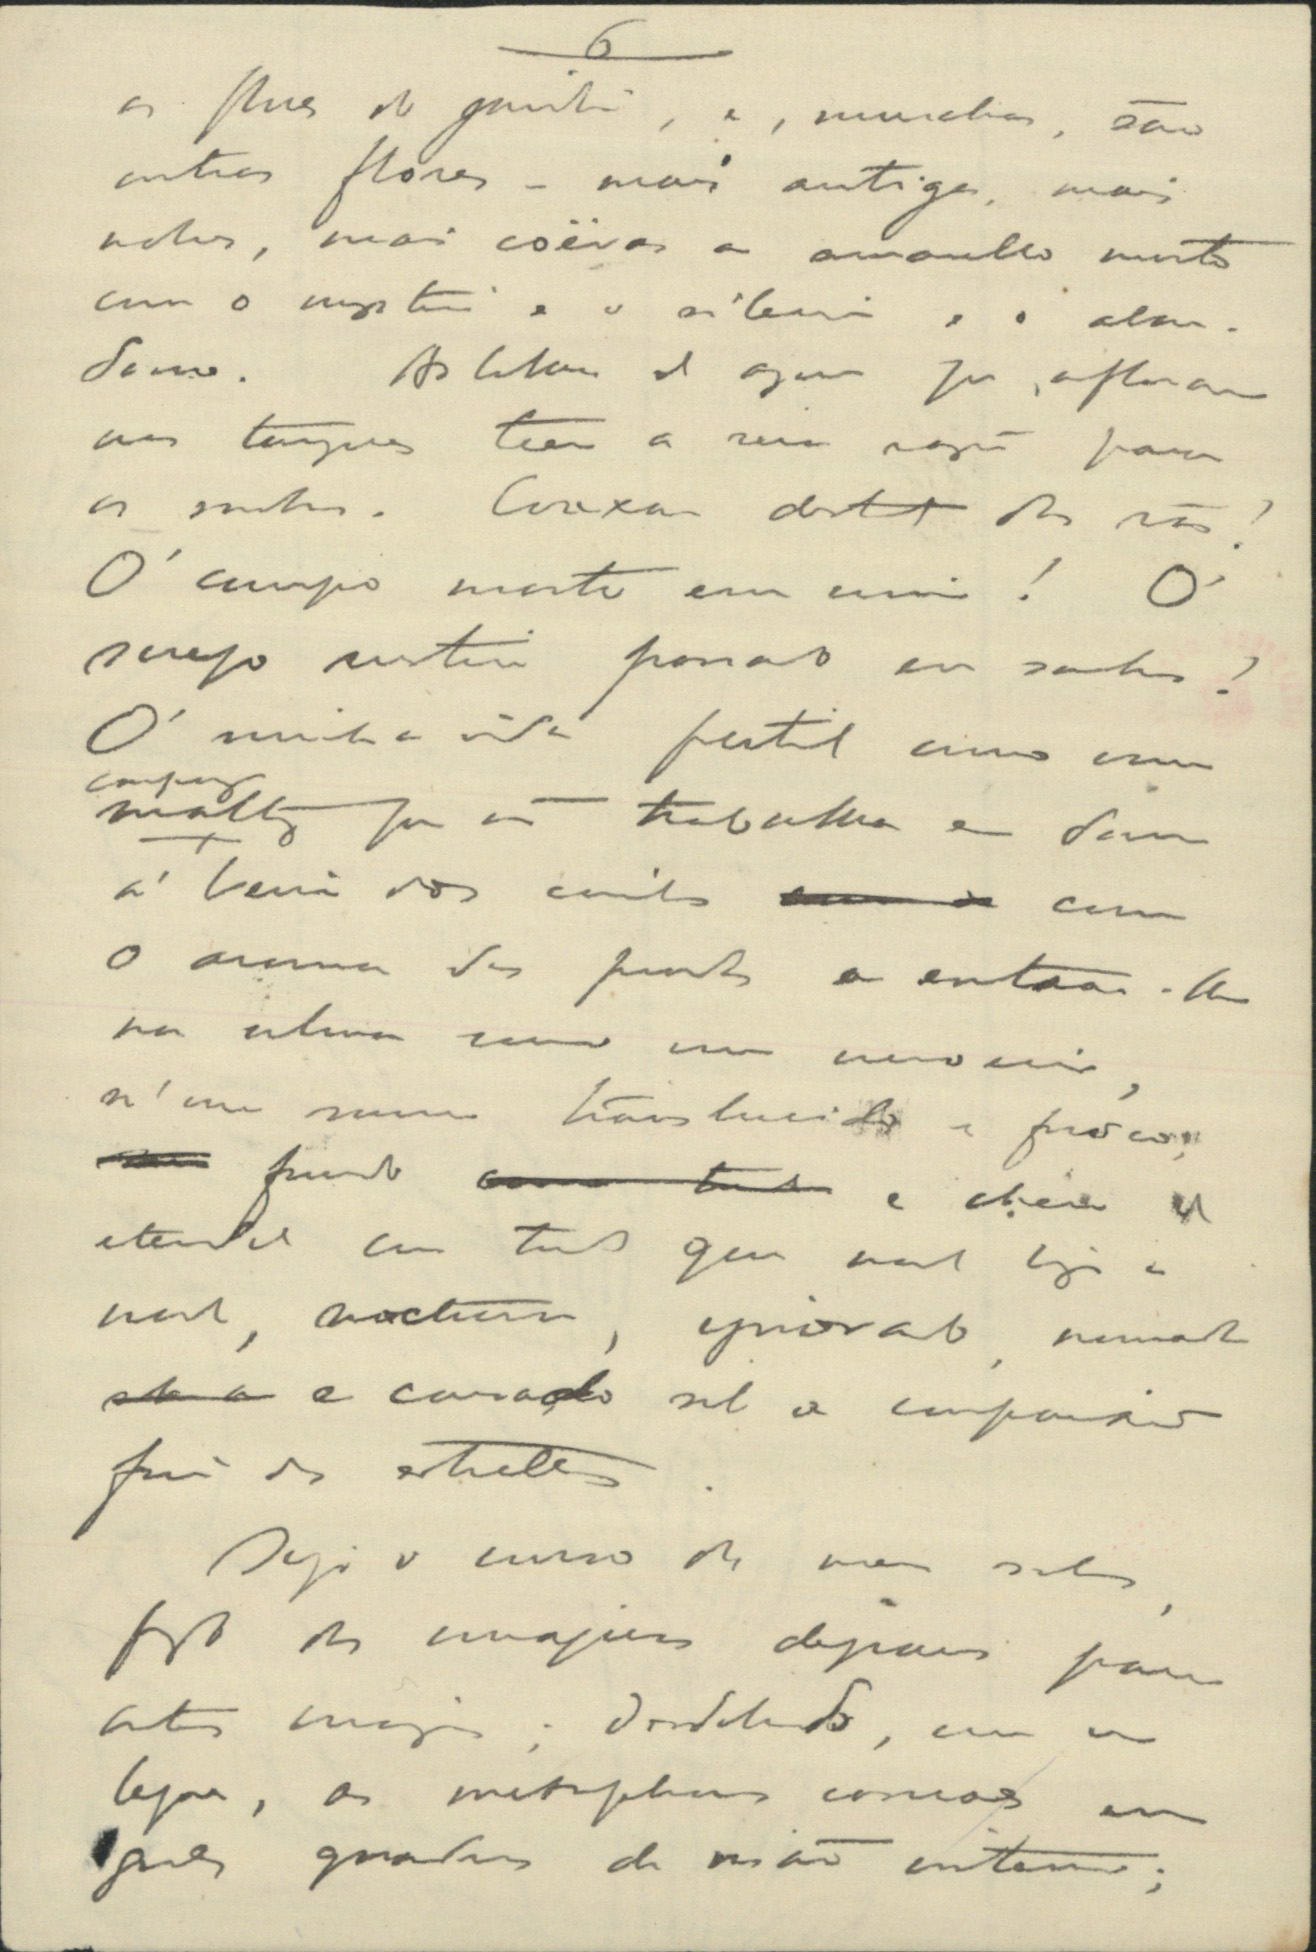 6
as flores do jardim, e, murchas, são
outras flores - mais antigas, mais
nobres, mais coëvas a amarello morto
com o mysterio e o silencio e o aban-
dono. As bolhas de agua que afloram
nos tanques teem a sua razão para
os sonhos. Coaxar das rãs!
Ó campo morto em mim! Ó
socego rustico passado em sonhos!
Ó minha vida futil como um
maltez que não trabalha e dorme
camponez
á beira dos caminhos com
o aroma dos prados a entrar-lhe
na alma como um nevoeiro,
n'um somno translucido e fresco,
fundo e cheio de
eterno como tudo que nada liga a
nada, nocturno, ignorado, nomada
e cansado sob a compaixão
fria das estrellas.
Sigo o curso dos meus sonhos,
fazendo das imagens degraus para
outras imagens; desdobrando, como um
leque, as metaphoras casuaes em
grandes quadros de visão interna;